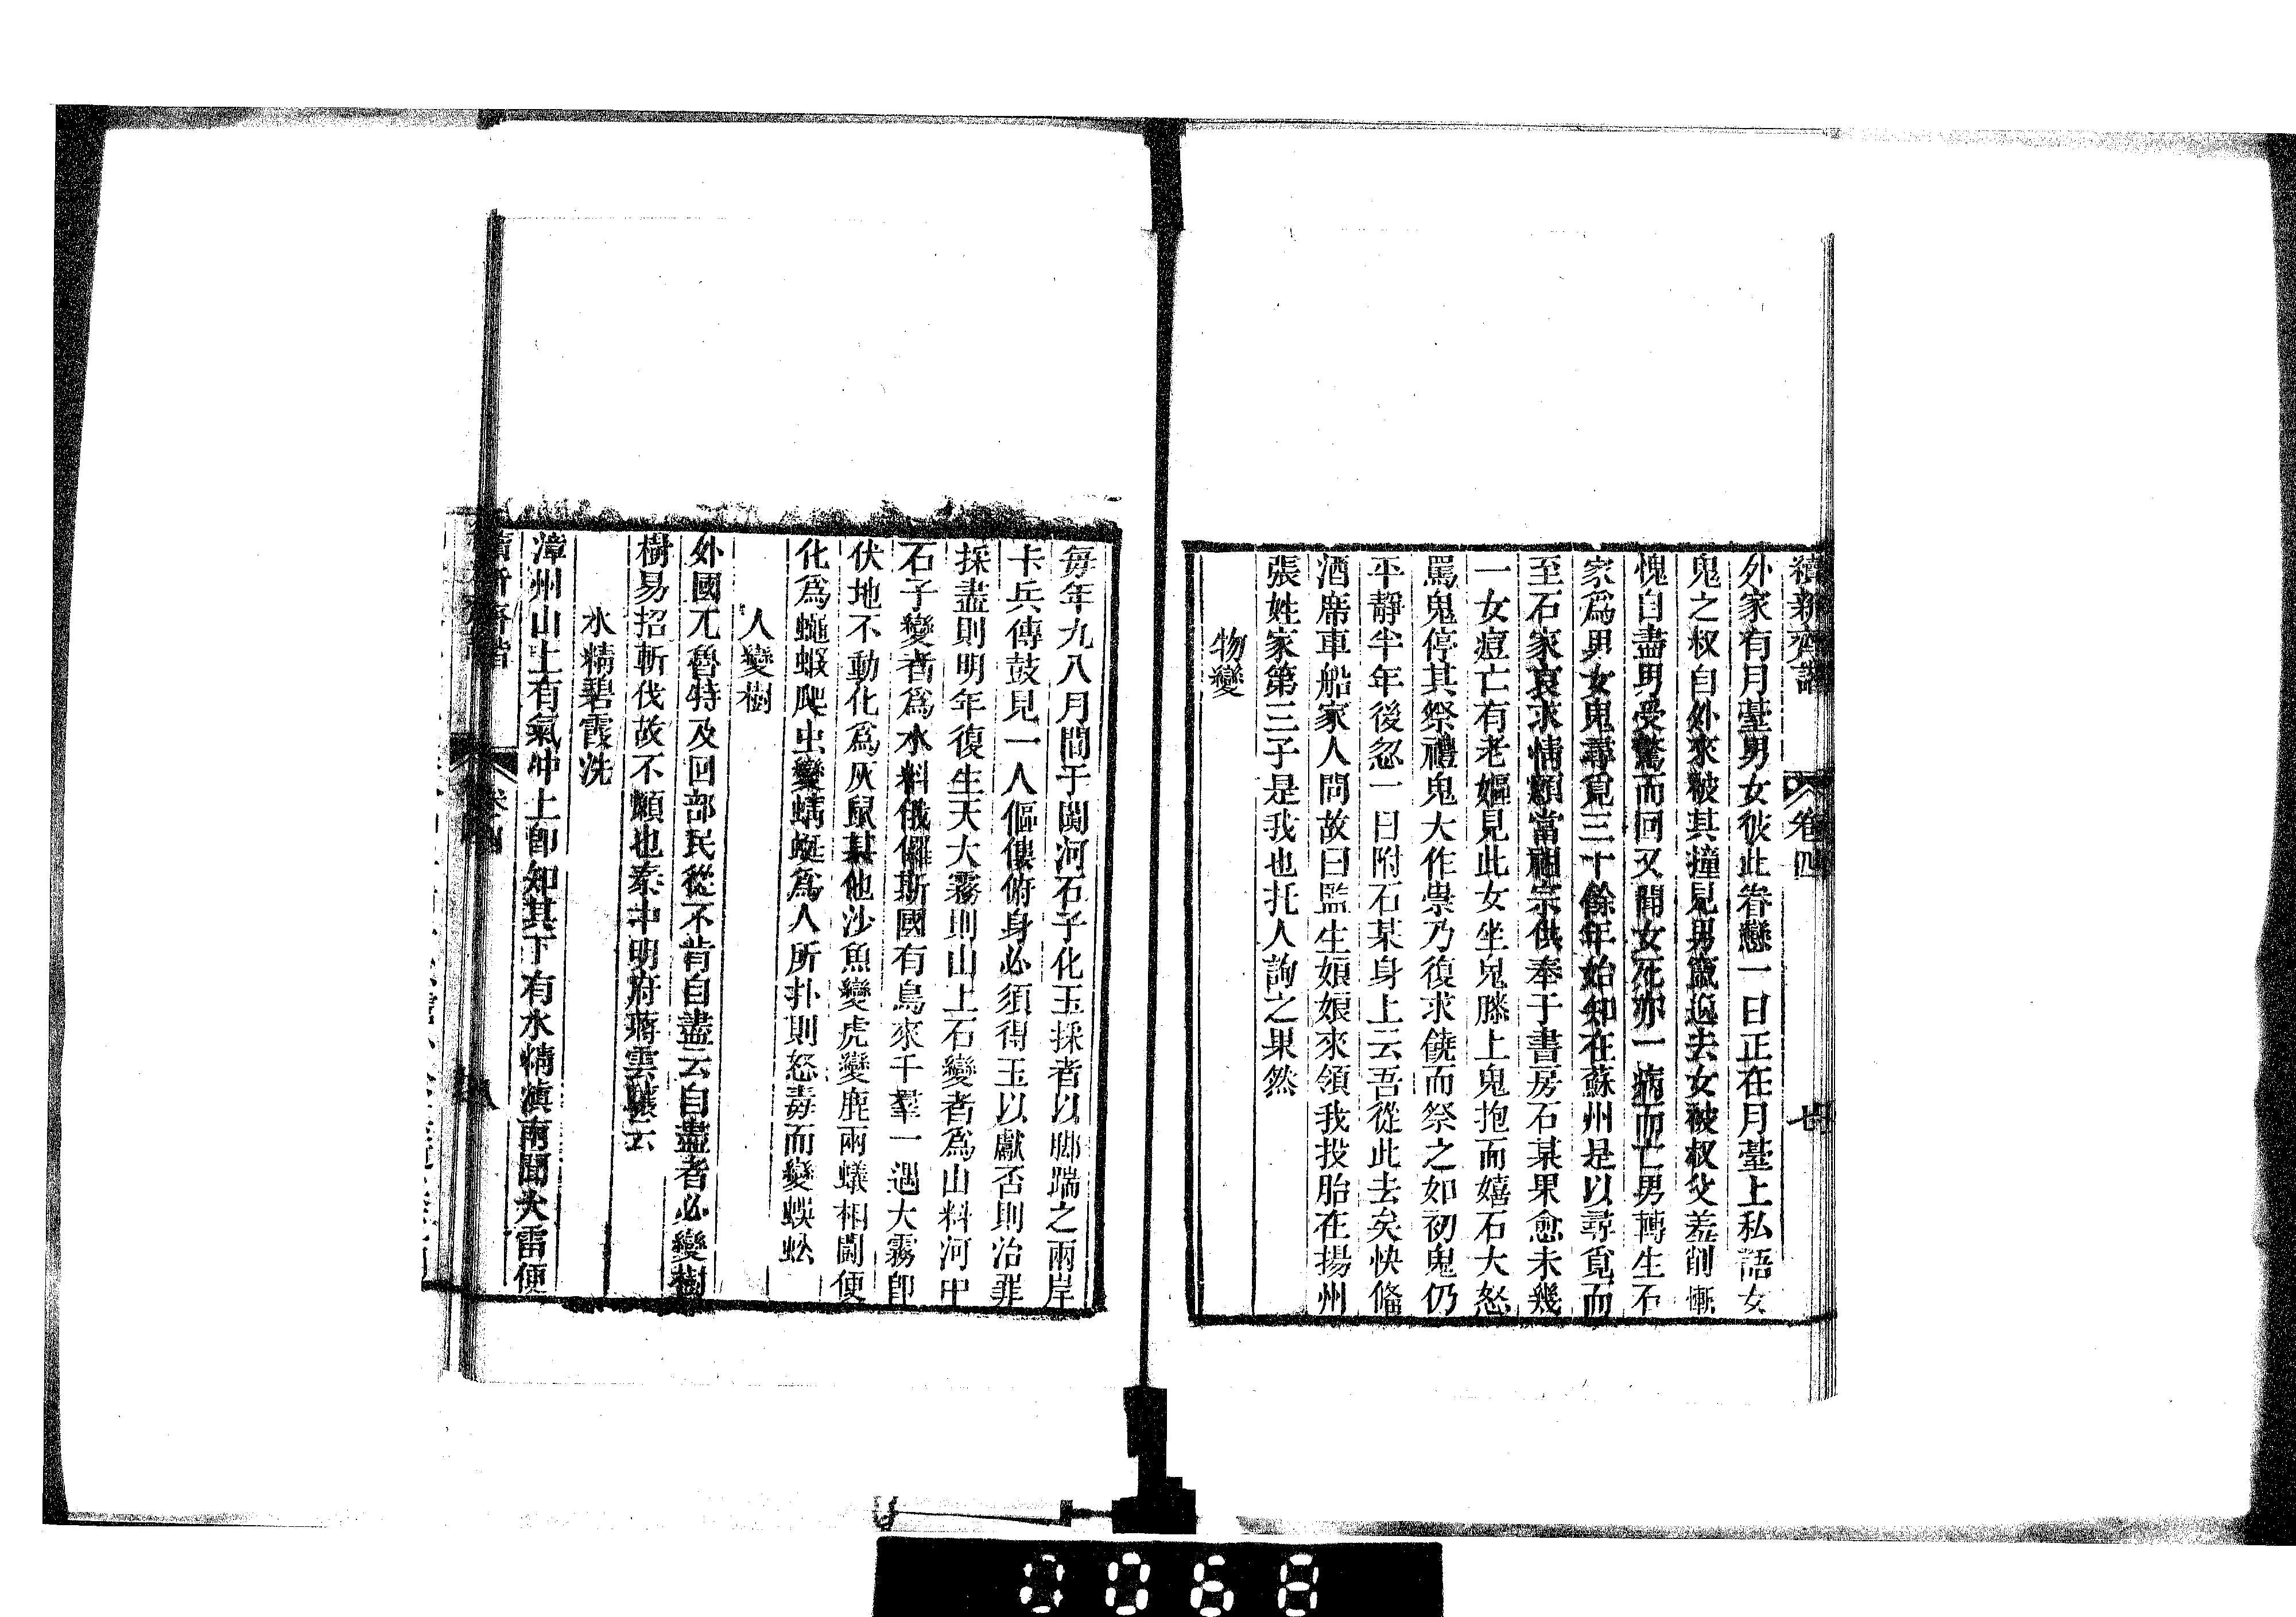 續新齊諧　卷四　七
外家有月臺男女彼此眷戀一日正在月臺上私語女
鬼之叔自外來被其撞見男竄逃去女被叔父羞削慚
愧自盡男受驚而回又聞女死亦一病而亡男轉生石
家爲男女鬼尋覓三十餘年始知在蘇州是以尋覓而
至石家哀求情願當祖宗供奉于書房石某果愈未幾
一女痘亡有老嫗見此女坐鬼膝上鬼抱而嬉石大怒
罵鬼停其祭禮鬼大作祟乃復求饒而祭之如初鬼仍
平靜半年後忽一日附石某身上云吾從此去矣快備
酒席車船家人問故曰監生娘娘來領我投胎在揚州
張姓家第三子是我也托人詢之果然
物變
每年九八月間于闐河石子化玉採者以脚踹之兩岸
卡兵傳鼓見一人傴僂俯身必須得玉以獻否則治罪
採盡則明年復生天大霧則山上石變者爲山料河中
石子變者爲水料俄儸斯國有鳥來千羣一遇大霧即
伏地不動化爲灰鼠其他沙魚變虎變鹿兩蟻相鬭便
化爲蠅蝦爬虫變蜻蜓爲人所扑則怒毒而變蜈蚣
人變樹
外國兀魯特及回部民從不肯自盡云自盡者必變樹
樹易招斬伐故不願也秦中明府蔣雲驤云
水精碧霞洗
漳州山上有氣冲上卽知其下有水精滇南聞大雷便
續新齊諧　卷四　八